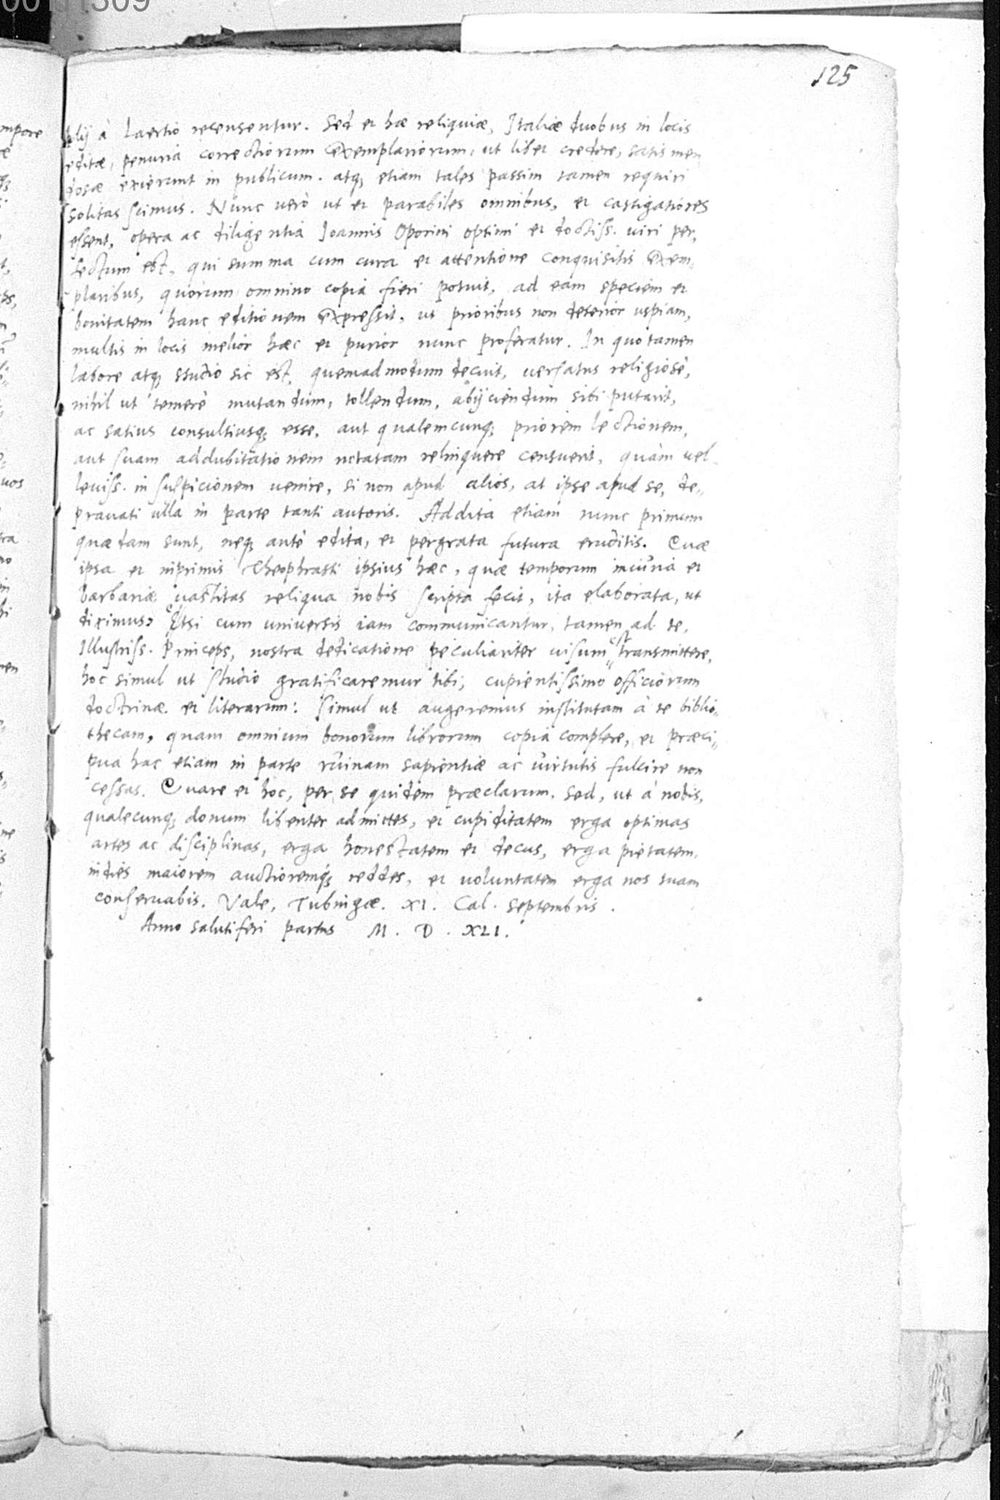 00111309
125
plij à Laertio recensentur. Sed et hæ reliquiæ, Italiæ duobus in locis
editæ, penuria correctiorum exemplariorum, ut libet credere, satis men
dosæ exierunt in publicum. atq; etiam tales passim tamen requiri
solitas scimus. Nunc verò ut et parabiles omnibus, et castigatiores
essent, opera ac diligentia Ioannis Oporini optimi et doctiss. viri per,
fectum est, qui summa cum cura et attentione conquisitis exem,
plaribus, quorum omnino copia fieri potuit, ad eam speciem et
bonitatem hanc editionem expressit, ut prioribus non deterior uspiam,
multis in locis melior hæc et purior nunc proferatur. In quo tamen
labore atq; studio sic est, quemadmodum decuit, versatus religiosè,
nihil ut temerè mutandum, tollendum, abijciendum sibi putarit,
ac satius consultiusq; esse, aut qualemcunq; priorem lectionem,
aut suam addubitationem notatam relinquere censuerit, quàm vel
leviss. in suspicionem venire, si non apud alios, at ipse apud se, de,,
pravati ulla in parte tanti autoris. Addita etiam nunc primum
quædam sunt, neq; antè edita, et pergrata futura eruditis. Quæ
ipsa et inprimis Theophrasti ipsius hæc, quæ temporum iniuria et
barbariæ vastitas reliqua nobis scripta fecit, ita elaborata, ut
diximus, Etsi cum universis iam communicantur, tamen ad te,
Illustriss. Princeps, nostra dedicatione peculiariter visum est transmittere,
hoc simul ut studio gratificaremur tibi, cupientissimo officiorum
doctrinæ et literarum: simul ut augeremus institutam à te biblio,,
thecam, quam omnium bonorum librorum copia complere, et præci,,
pua hac etiam in parte ruinam sapientiæ ac virtutis fulcire non
cessas. Quare et hoc, per se quidem præclarum, sed, ut à nobis,
qualecunq; donum libenter admittes, et cupiditatem erga optimas
artes ac disciplinas, erga honestatem et decus, erga pietatem,
indies maiorem auctioremq; reddes, et voluntatem erga nos tuam
conservabis. Vale, Tubingæ. XI. Cal. Septembris.
Anno salutiferi partus M. D. XLI.